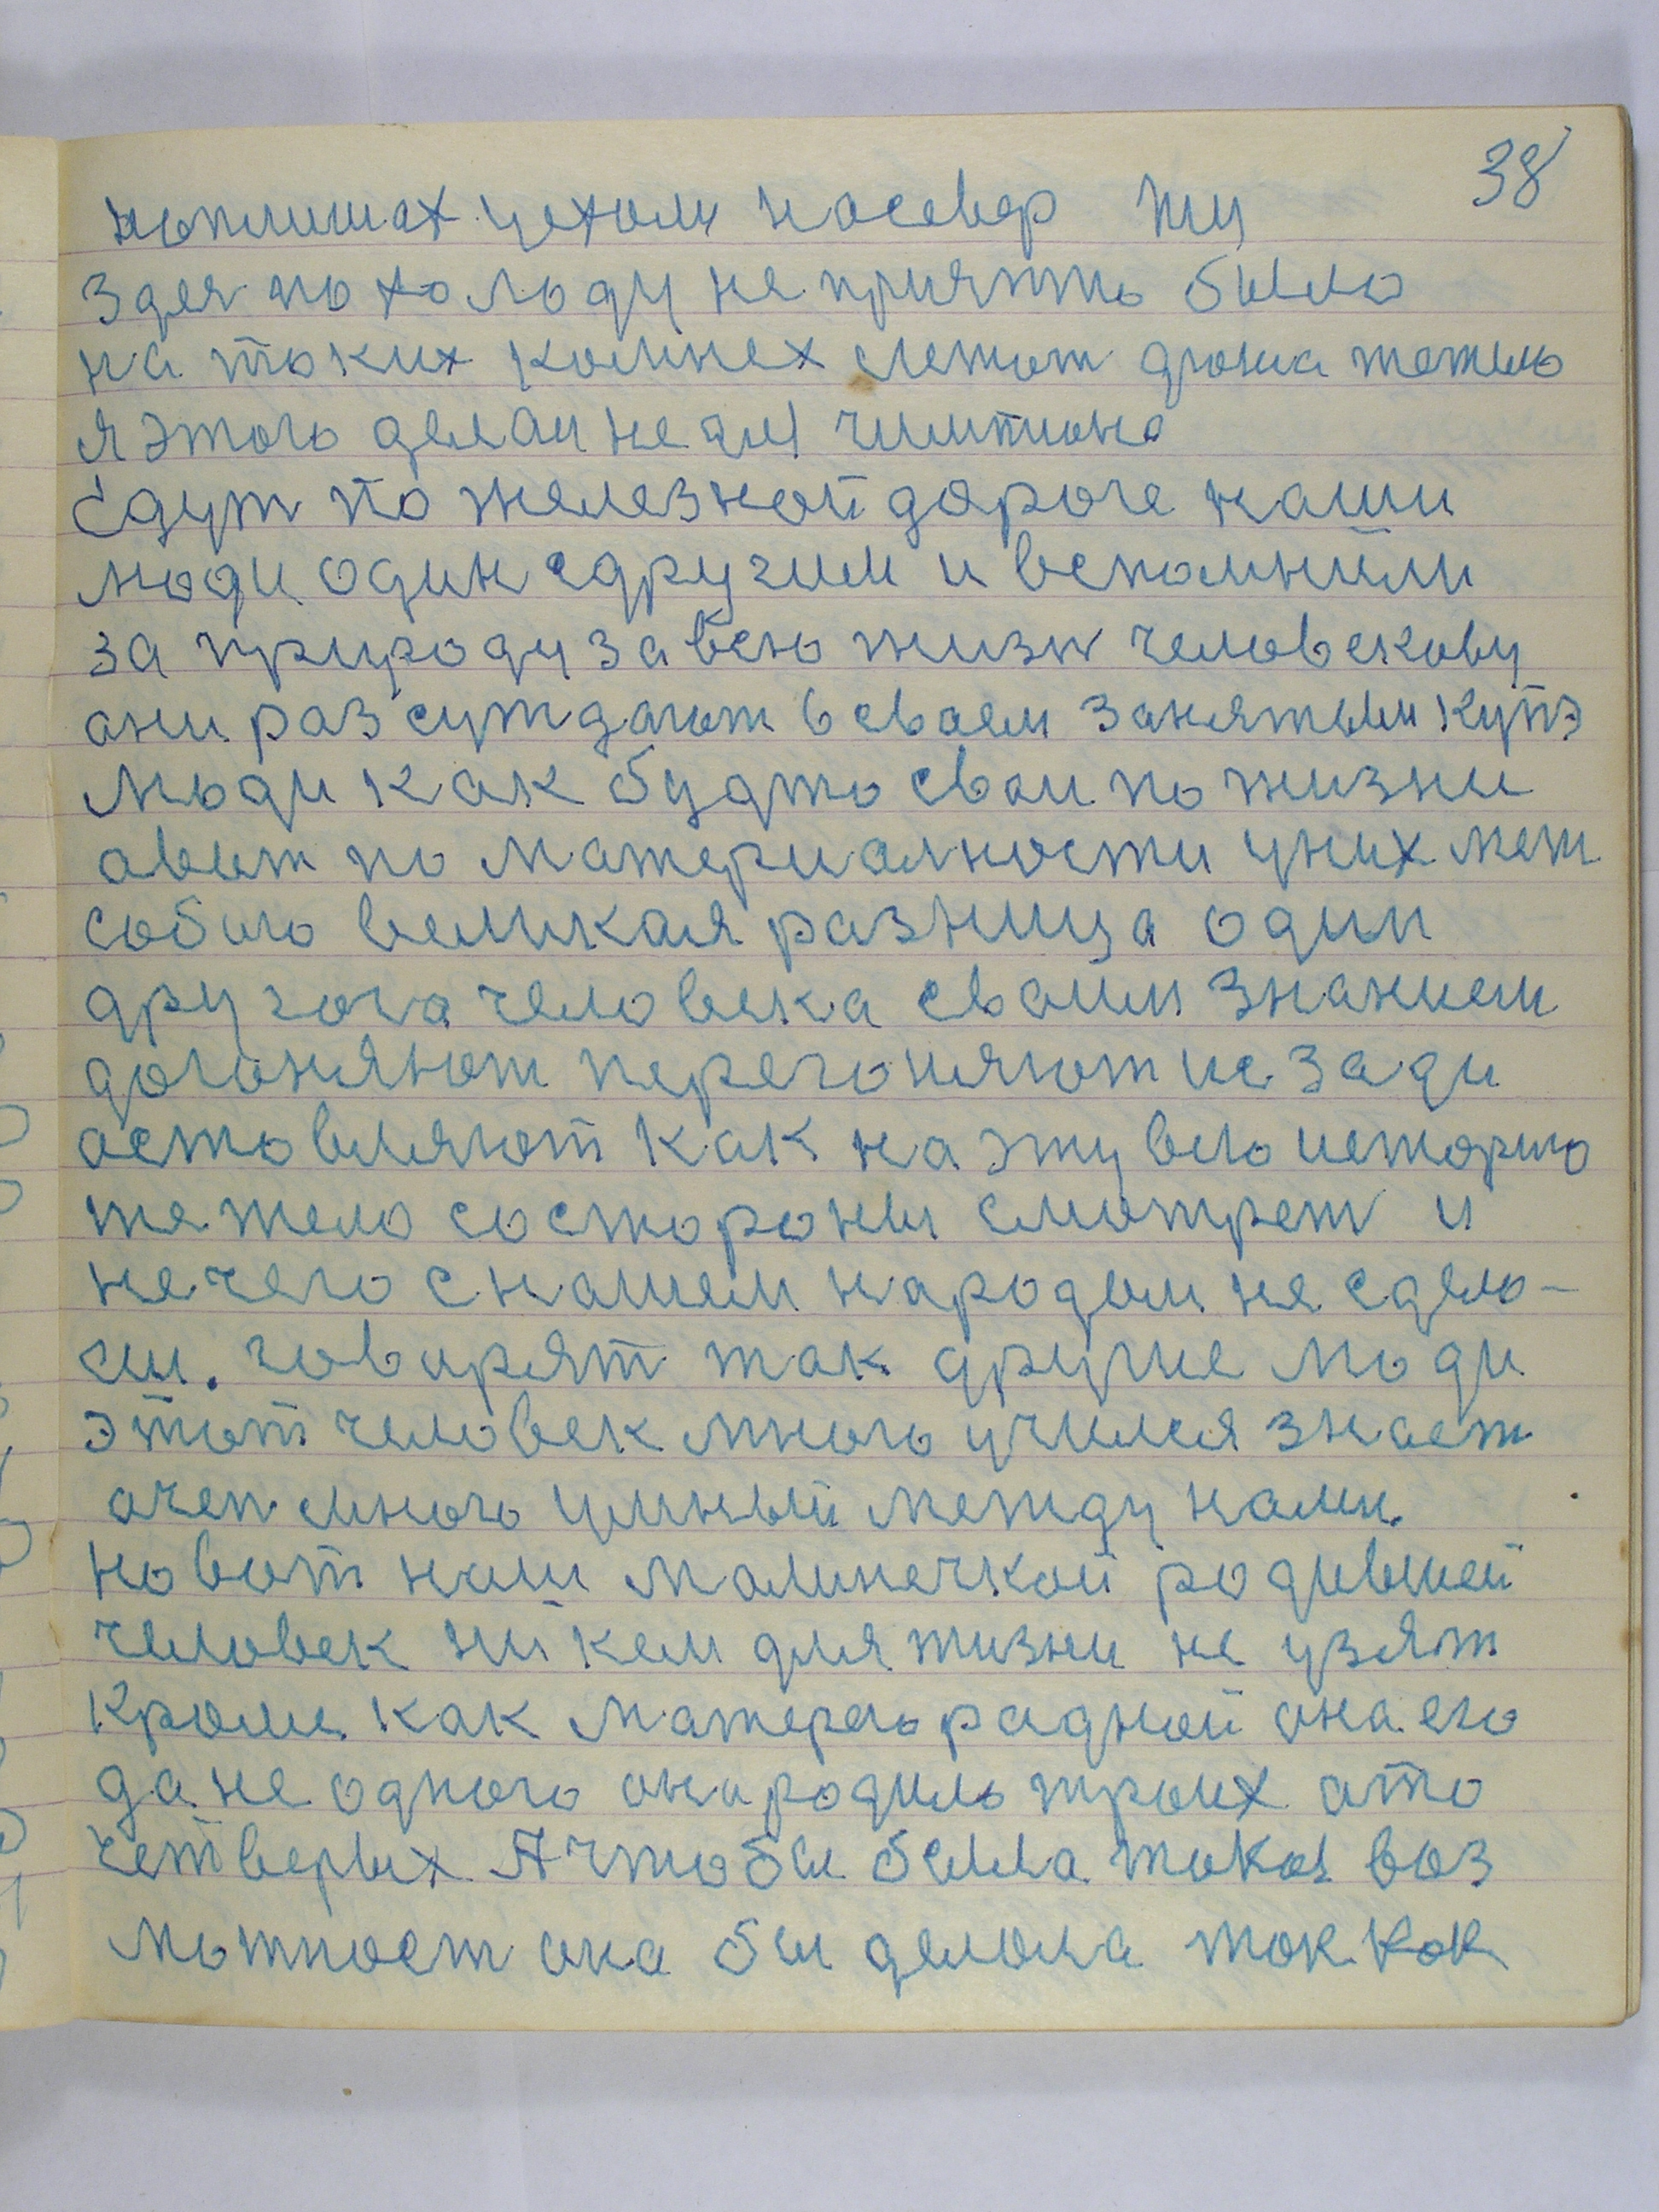 38
уехали насевер
Здея по холоду не приятно было
на таких камнех лежат дюжа тежело
я этого делаи не для чимпиона
Едут по железной дароге наши
люди один сдругим и вспомнили
за природу завсю жизн человекову
ани разсуждают всваем занятым купэ
люди как будто сваи по жизни
авот по материалности уних меж
собою великая разница один
другога человека сваим знанием
догоняют перегоняют исзади
астовляют как наэту всю исторыю
тежело состороны смотрет и
нечего снашем народом не сдела-
еш. говорят так другие люди
этот человек много учился знает
очен много умный между нами.
но вот наш малинечкой родившей
человек ни кем для жизни не узят
кроме как матерью радной она его
да не одного она родила троих ато
четверых А чтобы былла такая воз
можност она бы делала так как